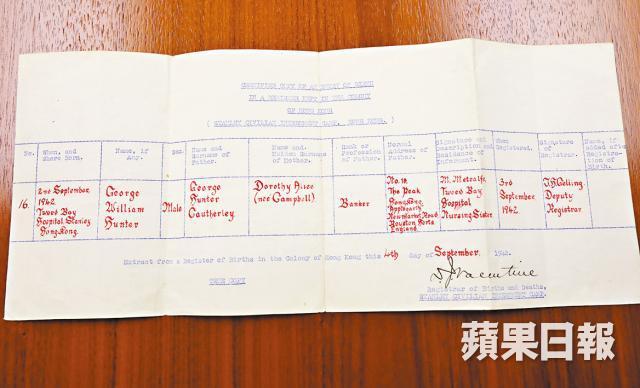 CERTIFIED COPY OF AN ENTRY OF BIRTH
IN A REGISTER KEPT IN THE COLONY
OF HONG KONG
( STANLEY CIVILIAN INTERNMENT CAMP, HONG KONG. )
No. When, and Where Born. Name, if Any. Sex. Name and Surname of Father. Name and Maiden Surname of Mother. Rank or Profession of Father. Normal Address of Father. Signature and Description and Residence of Informant. When Registered. Signature of Registrar. Name, if added after Registration of Birth.
16. 2nd September 1942 Tweed Bay Hospital Stanley Hong Kong. George William Hunter Male George Hunter Cautherley. Dorothy Alice (neé Campbell) Banker No. 19, The Peak Hong Kong. Newmarket Road Royston Herts England. M. Metcalfe. Tweed Bay Hospital Nursing Sister 3rd September 1942. Deputy Registrar
Extract from a Register of Births in the Colony of Hong Kong this 4th day of September, 1942.
TRUE COPY
Registrar of Births and Deaths,
STANLEY CIVILIAN INTERNMENT CAMP.
蘋果日報